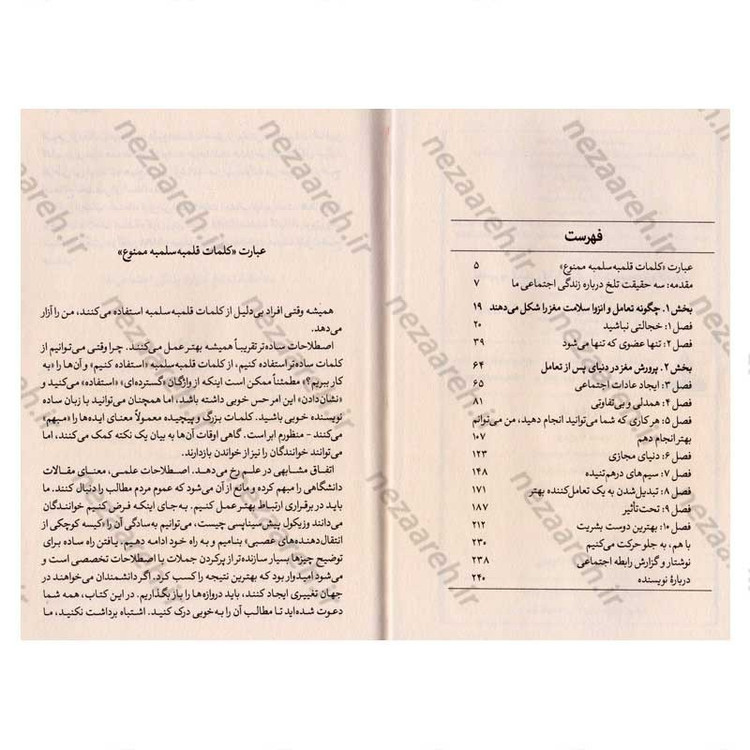 فهرست
عبارت «کلمات قلمبه‌سلمبه ممنوع» ۵
مقدمه: سه حقیقت تلخ درباره زندگی اجتماعی ما ۷
بخش ۱. چگونه تعامل و انزوا سلامت مغز را شکل می‌دهند ۱۹
فصل ۱: خجالتی نباشید ۲۰
فصل ۲: تنها عضوی که تنها می‌شود ۳۹
بخش ۲. پرورش مغز در دنیای پس از تعامل ۶۴
فصل ۳: ایجاد عادات اجتماعی ۶۵
فصل ۴: همدلی و بی‌تفاوتی ۸۱
فصل ۵: هر کاری که شما می‌توانید انجام دهید، من می‌توانم
بهتر انجام دهم ۱۰۷
فصل ۶: دنیای مجازی ۱۲۳
فصل ۷: سیم‌های درهم‌تنیده ۱۴۸
فصل ۸: تبدیل‌شدن به یک تعامل‌کننده بهتر ۱۷۱
فصل ۹: تحت‌تأثیر ۱۸۷
فصل ۱۰: بهترین دوست بشریت ۲۱۲
با هم، به جلو حرکت می‌کنیم ۲۳۰
نوشتار و گزارش رابطه اجتماعی ۲۳۸
دربارهٔ نویسنده ۲۴۰
عبارت «کلمات قلمبه‌سلمبه ممنوع»
همیشه وقتی افراد بی‌دلیل از کلمات قلمبه‌سلمبه استفاده می‌کنند، من را آزار
می‌دهد.
اصطلاحات ساده‌تر تقریباً همیشه بهتر عمل می‌کنند. چرا وقتی می‌توانیم از
کلمات ساده‌تر استفاده کنیم، از کلمات قلمبه‌سلمبه «استفاده کنیم» و آن‌ها را «به
کار ببریم»؟ مطمئناً ممکن است اینکه از واژگان «گسترده‌ای» «استفاده» می‌کنید و
«نشان‌دادن» این امر حس خوبی داشته باشد، اما همچنان می‌توانید با زبان ساده
نویسنده خوبی باشید. کلمات بزرگ و پیچیده معمولاً معنای ایده‌ها را «مبهم»
می‌کنند - منظورم ابر است. گاهی اوقات آن‌ها به بیان یک نکته کمک می‌کنند، اما
می‌توانند خوانندگان را نیز از خواندن بازدارند.
اتفاق مشابهی در علم رخ می‌دهد. اصطلاحات علمی، معنای مقالات
دانشگاهی را مبهم کرده و مانع از آن می‌شود که عموم مردم مطالب را دنبال کنند. ما
باید در برقراری ارتباط بهتر عمل کنیم. به‌جای اینکه فرض کنیم خوانندگان
می‌دانند وزیکول پیش‌سیناپسی چیست، می‌توانیم به‌سادگی آن را «کیسه کوچکی از
انتقال‌دهنده‌های عصبی» بنامیم و به راه خود ادامه دهیم. یافتن راه ساده برای
توضیح چیزها بسیار سازنده‌تر از پرکردن جملات با اصطلاحات تخصصی است و
می‌شود امیدوار بود که بهترین نتیجه را کسب کرد. اگر دانشمندان می‌خواهند در
جهان تغییری ایجاد کنند، باید دروازه‌ها را باز بگذاریم. در این کتاب، همه شما
دعوت شده‌اید تا مطالب آن را به‌خوبی درک کنید. اشتباه برداشت نکنید، ما
nezaareh.ir
nezaareh.ir
nezaareh.ir
nezaareh.ir
nezaareh.ir
nezaareh.ir
nezaareh.ir